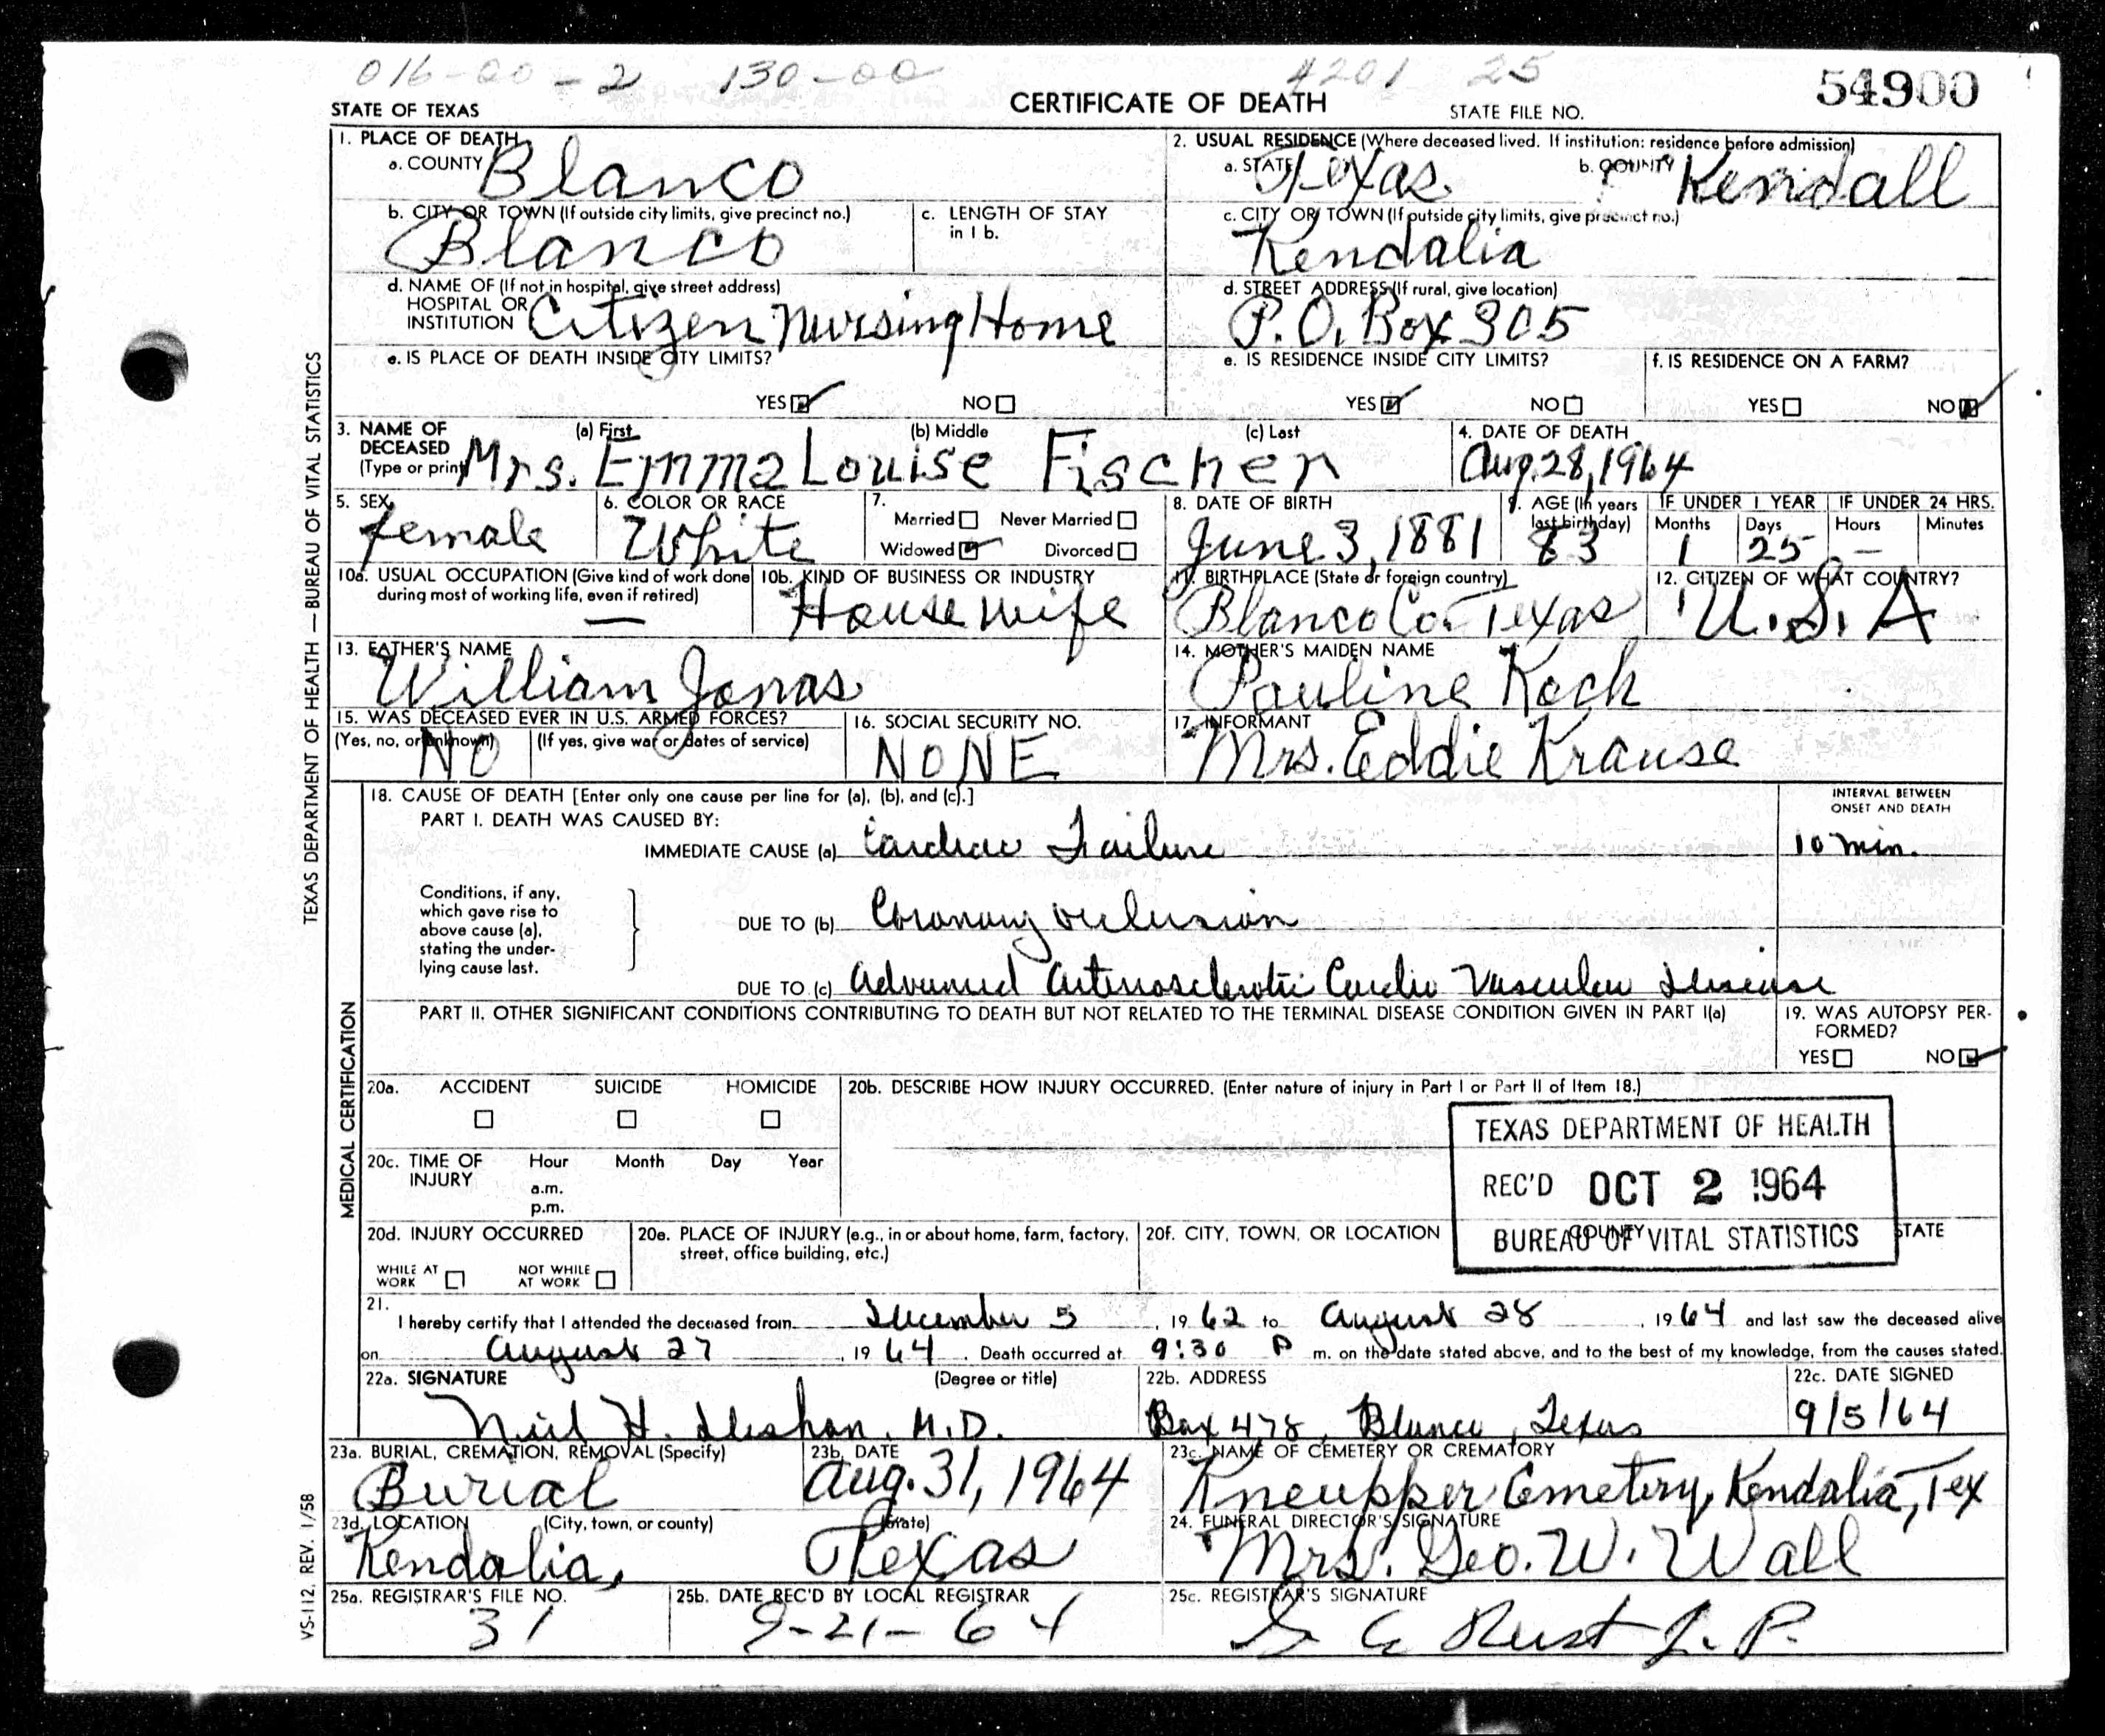 016-00-2 130-00 4201 25
54900
STATE OF TEXAS CERTIFICATE OF DEATH STATE FILE NO.
1. PLACE OF DEATH
a. COUNTY Blanco
2. USUAL RESIDENCE (Where deceased lived. If institution: residence before admission)
a. STATE Texas b. COUNTY Kendall
b. CITY OR TOWN (If outside city limits, give precinct no.)
Blanco
c. LENGTH OF STAY
in 1 b.
c. CITY OR TOWN (If outside city limits, give precinct no.)
Kendalia
d. NAME OF (If not in hospital, give street address)
HOSPITAL OR
INSTITUTION Citizen Nursing Home
d. STREET ADDRESS (If rural, give location)
P.O. Box 305
e. IS PLACE OF DEATH INSIDE CITY LIMITS?
YES NO
e. IS RESIDENCE INSIDE CITY LIMITS?
YES NO
f. IS RESIDENCE ON A FARM?
YES NO
3. NAME OF
DECEASED
(Type or print)
(a) First (b) Middle (c) Last
Mrs. Emma Louise Fischer
4. DATE OF DEATH
Aug. 28, 1964
5. SEX
female
6. COLOR OR RACE
White
7.
Married Never Married
Widowed Divorced
8. DATE OF BIRTH
June 3, 1881
9. AGE (In years
last birthday)
83
IF UNDER 1 YEAR IF UNDER 24 HRS.
Months Days Hours Minutes
1 25 —
10a. USUAL OCCUPATION (Give kind of work done
during most of working life, even if retired)
—
10b. KIND OF BUSINESS OR INDUSTRY
Housewife
11. BIRTHPLACE (State or foreign country)
Blanco Co. Texas
12. CITIZEN OF WHAT COUNTRY?
U.S.A
13. FATHER'S NAME
William Jonas
14. MOTHER'S MAIDEN NAME
Pauline Koch
15. WAS DECEASED EVER IN U.S. ARMED FORCES?
(Yes, no, or unknown) (If yes, give war or dates of service)
NO
16. SOCIAL SECURITY NO.
NONE
17. INFORMANT
Mrs. Eddie Krause
18. CAUSE OF DEATH [Enter only one cause per line for (a), (b), and (c).]
INTERVAL BETWEEN
ONSET AND DEATH
PART I. DEATH WAS CAUSED BY:
IMMEDIATE CAUSE (a) Cardiac Failure 10 min.
Conditions, if any,
which gave rise to
above cause (a),
stating the under-
lying cause last.
DUE TO (b) Coronary occlusion
DUE TO (c) Advanced Arteriosclerotic Cardio Vascular Disease
PART II. OTHER SIGNIFICANT CONDITIONS CONTRIBUTING TO DEATH BUT NOT RELATED TO THE TERMINAL DISEASE CONDITION GIVEN IN PART I(a)
19. WAS AUTOPSY PER-
FORMED?
YES NO
20a. ACCIDENT SUICIDE HOMICIDE
20b. DESCRIBE HOW INJURY OCCURRED. (Enter nature of injury in Part I or Part II of Item 18.)
20c. TIME OF
INJURY
Hour Month Day Year
a.m.
p.m.
TEXAS DEPARTMENT OF HEALTH
REC'D OCT 2 1964
BUREAU OF VITAL STATISTICS
20d. INJURY OCCURRED
WHILE AT
WORK
NOT WHILE
AT WORK
20e. PLACE OF INJURY (e.g., in or about home, farm, factory,
street, office building, etc.)
20f. CITY, TOWN, OR LOCATION COUNTY STATE
21.
I hereby certify that I attended the deceased from December 5, 1962 to August 28, 1964 and last saw the deceased alive
on August 27, 1964. Death occurred at 9:30 P m. on the date stated above, and to the best of my knowledge, from the causes stated.
22a. SIGNATURE (Degree or title)
Neil H. M.D.
22b. ADDRESS
Box 478, Blanco, Texas
22c. DATE SIGNED
9/5/64
23a. BURIAL, CREMATION, REMOVAL (Specify)
Burial
23b. DATE
Aug. 31, 1964
23c. NAME OF CEMETERY OR CREMATORY
Kneupper Cemetery, Kendalia, Tex
23d. LOCATION (City, town, or county) (State)
Kendalia, Texas
24. FUNERAL DIRECTOR'S SIGNATURE
Mrs. Geo. W. Wall
25a. REGISTRAR'S FILE NO.
31
25b. DATE REC'D BY LOCAL REGISTRAR
9-21-64
25c. REGISTRAR'S SIGNATURE
Rust J. P.
TEXAS DEPARTMENT OF HEALTH — BUREAU OF VITAL STATISTICS
MEDICAL CERTIFICATION
VS-112, REV. 1/58